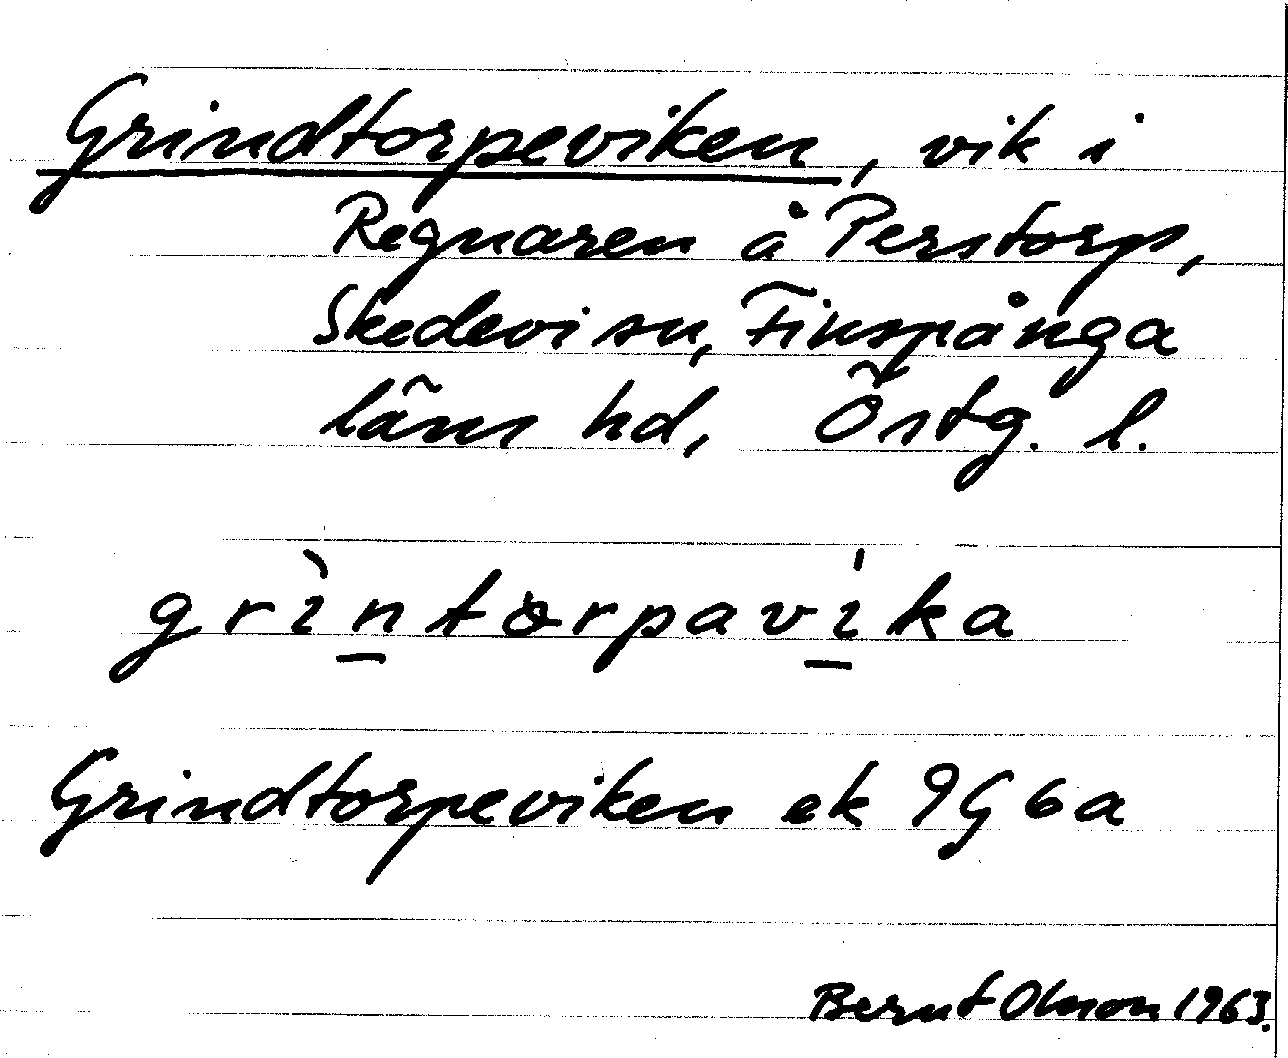 Grindtorpeviken, vik i
Regnaren å Perstorp,
Skedevi sn, Finspånga
läns hd, Östg. l.
grìntɷrpavika
Grindtorpeviken ek 9G6a
Bernt Olsson 1963.